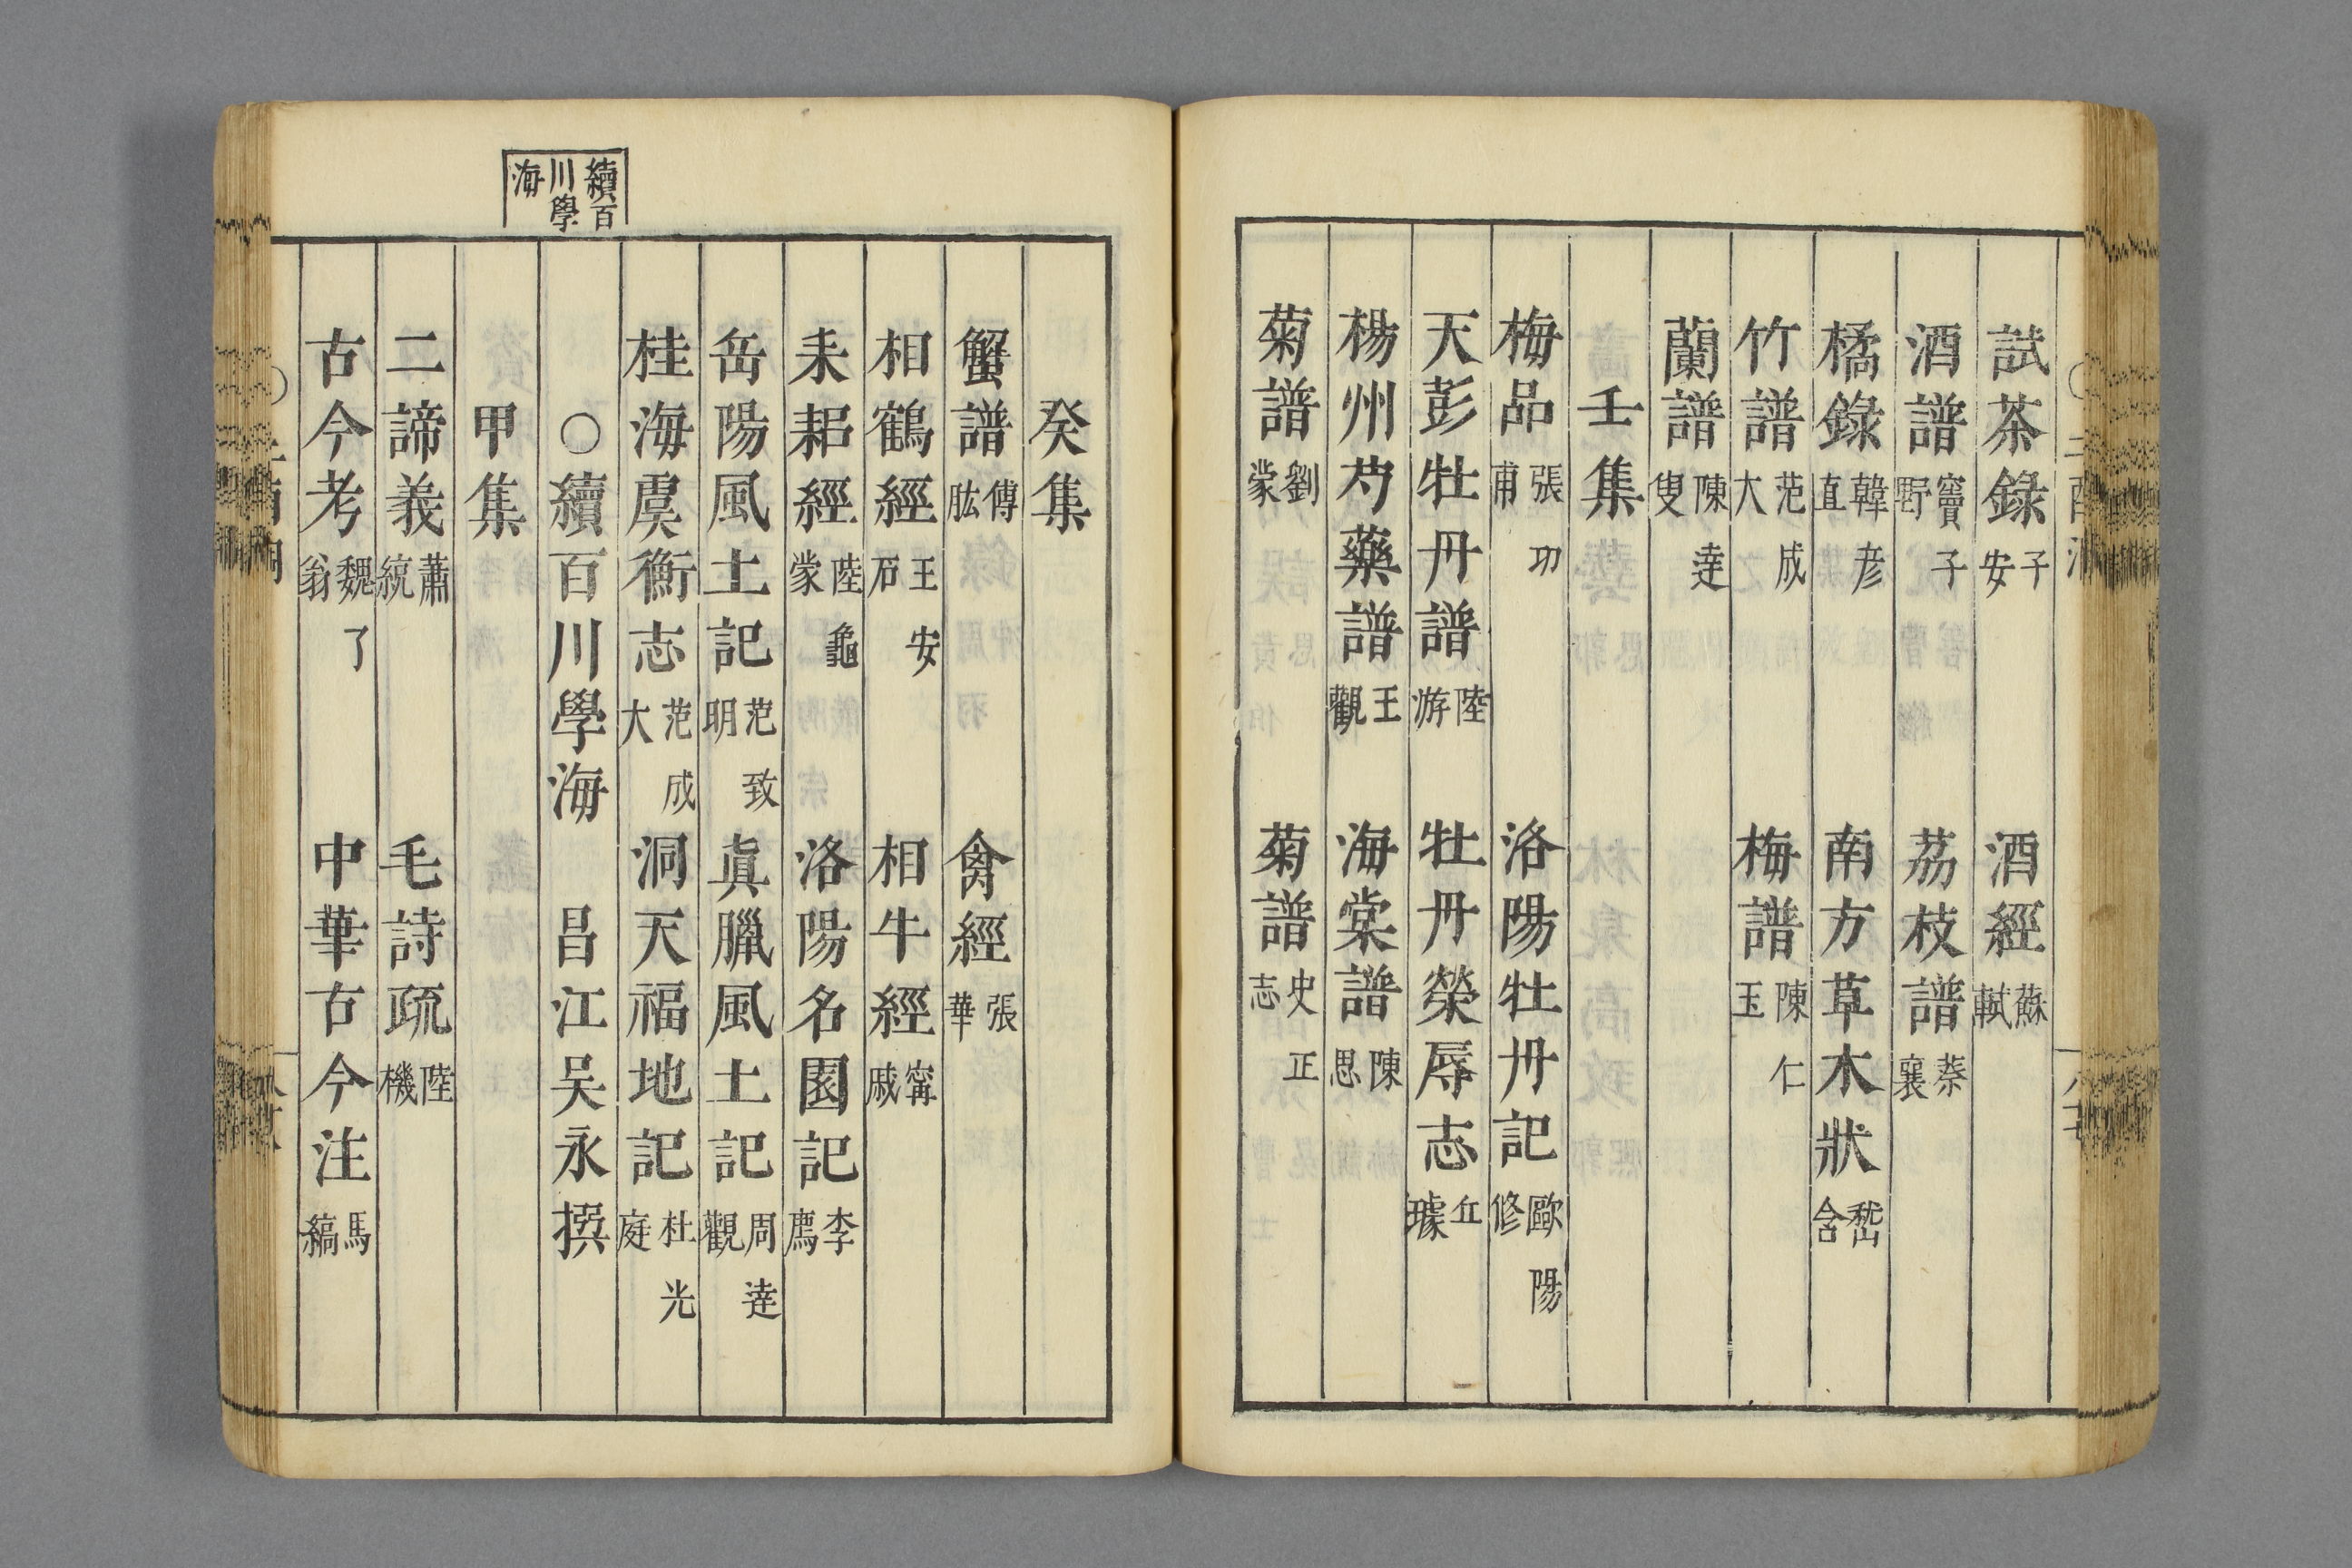 試茶錄 子安 酒經 蘇軾
酒譜 竇子野 荔枝譜 蔡襄
橘錄 韓彥直 南方草木狀 嵇含
竹譜 范成大 梅譜 陳仁玉
蘭譜 陳達叟
壬集
梅品 張功甫 洛陽牡丹記 歐陽修
天彭牡丹譜 陸游 牡丹榮辱志 丘璩
楊州芍藥譜 王觀 海棠譜 陳思
菊譜 劉蒙 菊譜 史正志
癸集
蟹譜 傅肱 禽經 張華
相鶴經 王安石 相牛經 甯戚
耒耜經 陸龜蒙 洛陽名園記 李廌
岳陽風土記 范致明 眞臘風土記 周達觀
桂海虞衡志 范成大 洞天福地記 杜光庭
續百川學海
○續百川學海 昌江吴永撰
甲集
二諦義 蕭統 毛詩疏 陸機
古今考 魏了翁 中華古今注 馬縞